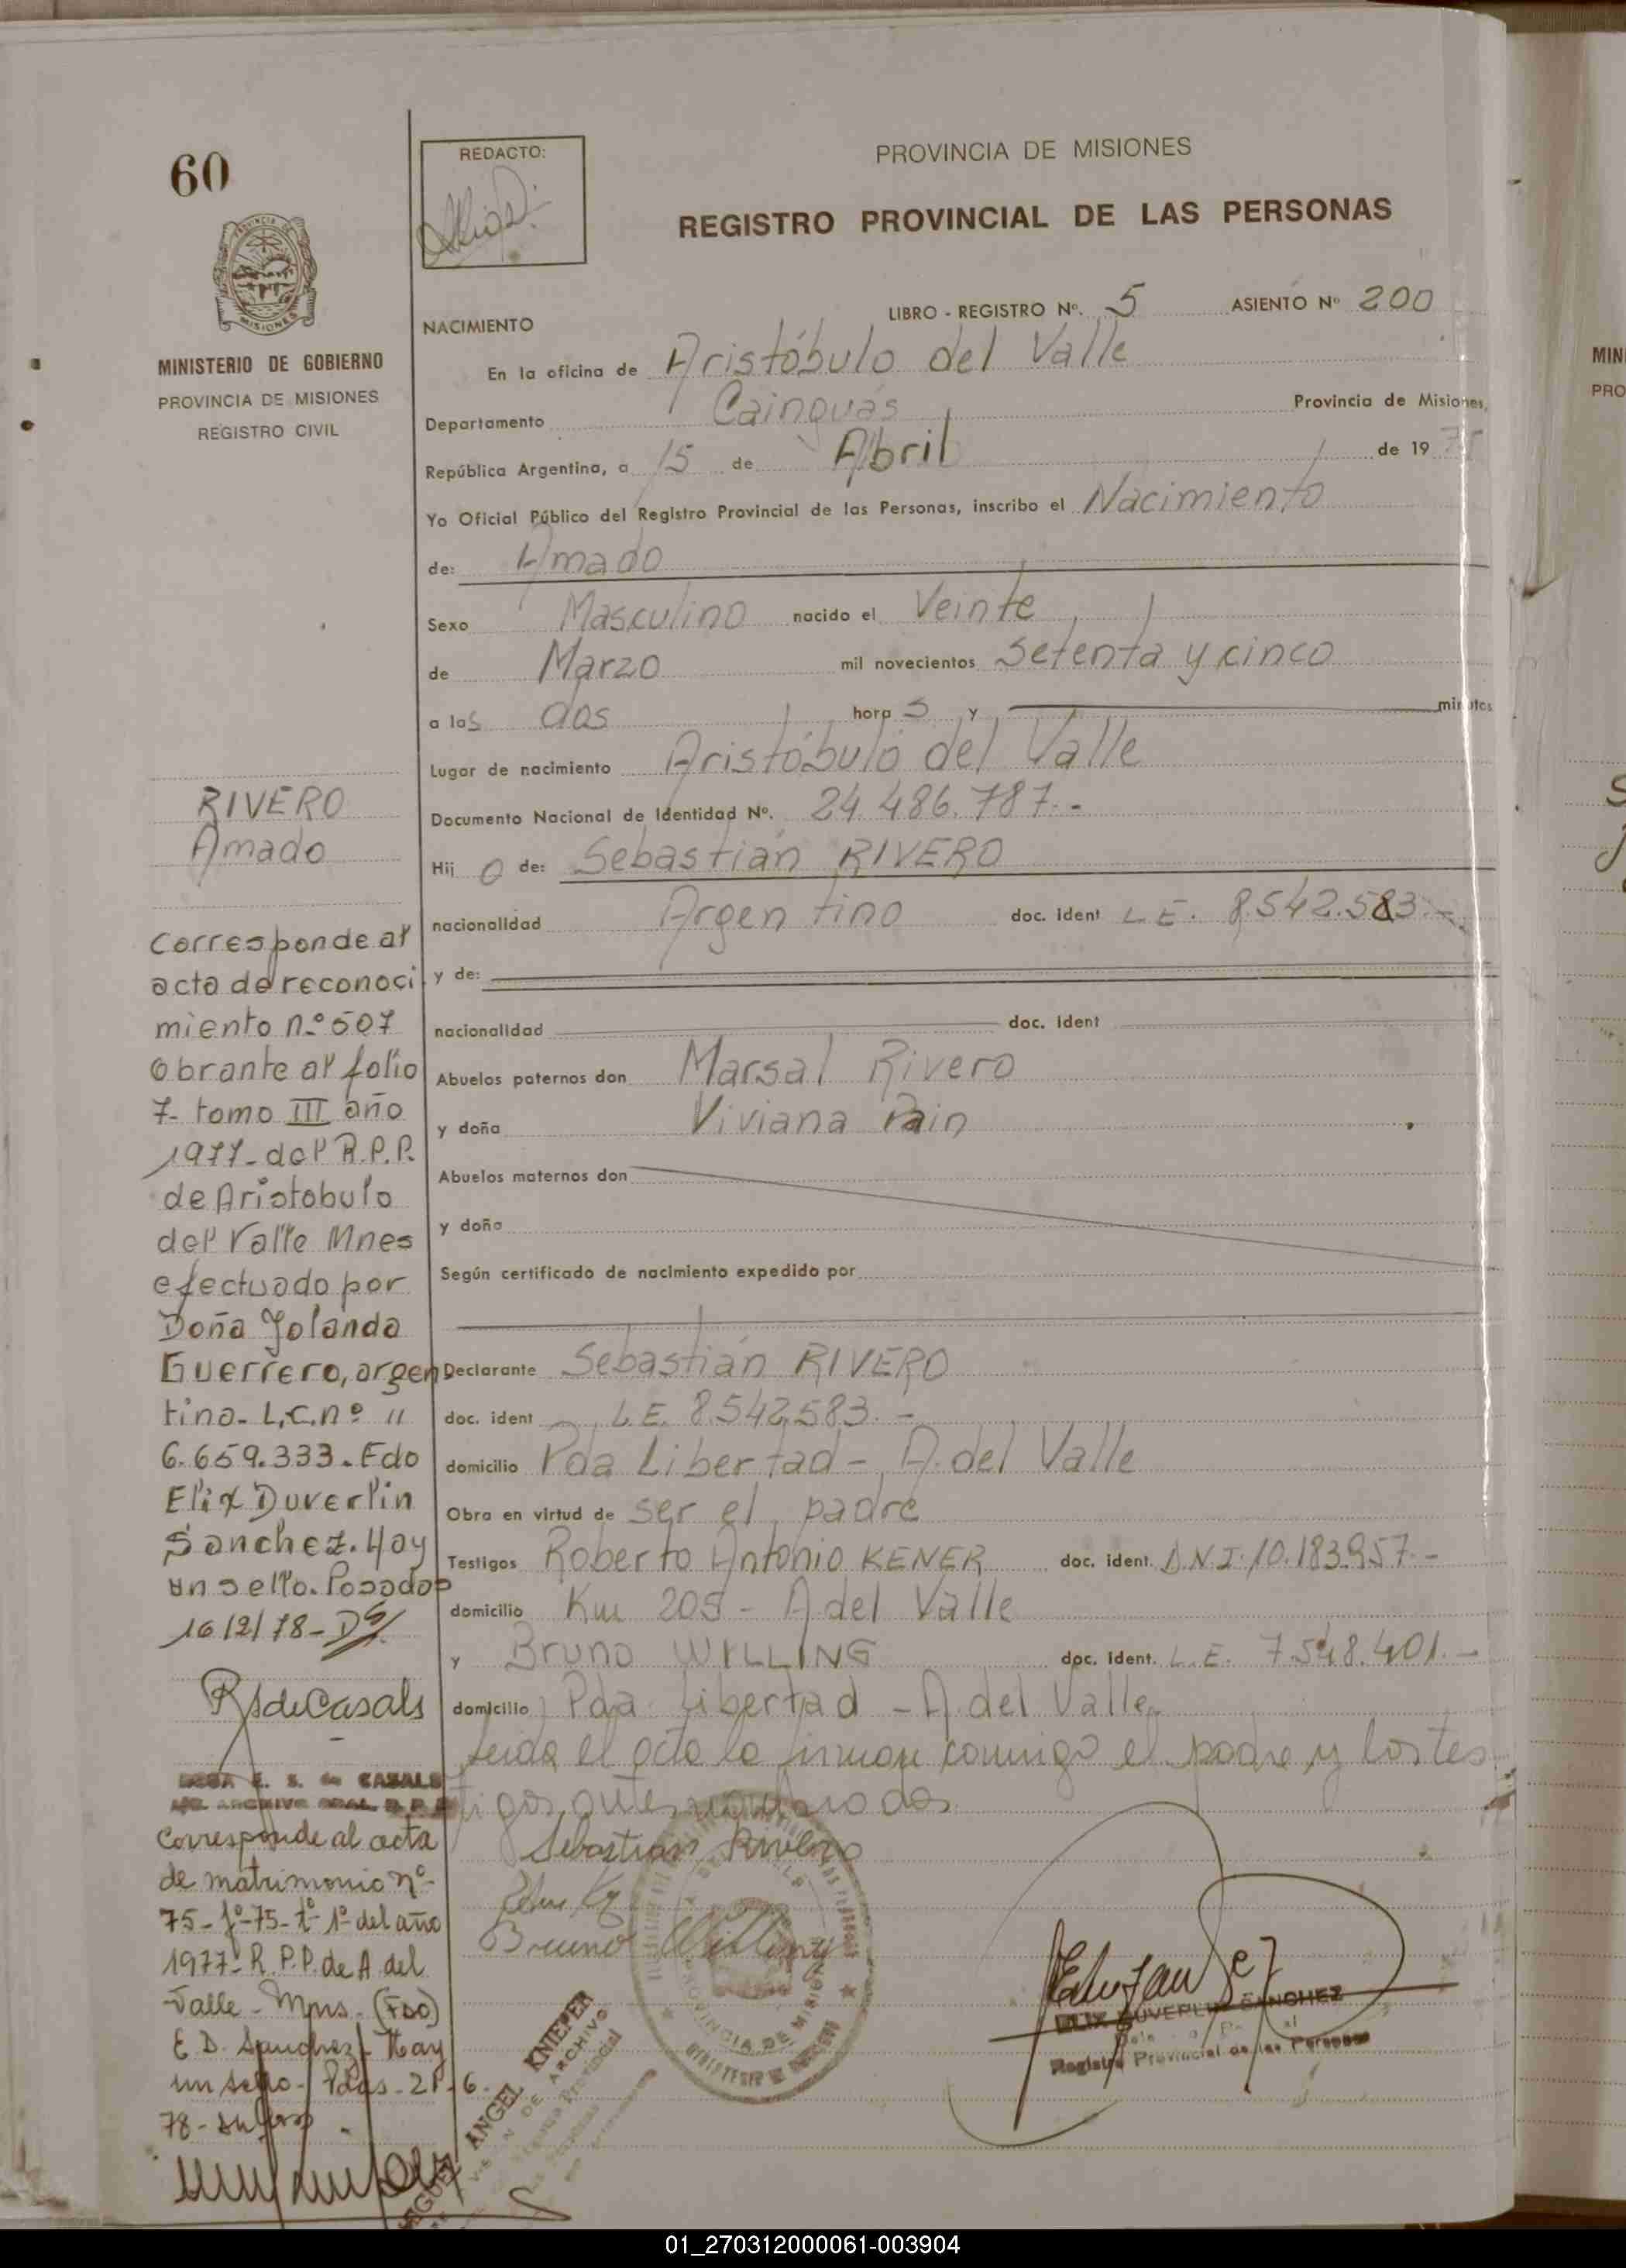 60
REDACTO:
PROVINCIA DE MISIONES
REGISTRO PROVINCIAL DE LAS PERSONAS
MISIONES
MINISTERIO DE GOBIERNO
PROVINCIA DE MISIONES
REGISTRO CIVIL
LIBRO - REGISTRO Nº. 5 ASIENTO Nº 200
NACIMIENTO
En la oficina de Aristóbulo del Valle
Departamento Cainguás Provincia de Misiones,
República Argentina, a 15 de Abril de 1975
Yo Oficial Público del Registro Provincial de las Personas, inscribo el Nacimiento
de: Amado
Sexo Masculino nacido el Veinte
de Marzo mil novecientos Setenta y cinco
a las dos horas y minutos
Lugar de nacimiento Aristóbulo del Valle
Documento Nacional de Identidad Nº. 24.486.787.-
Hijo de: Sebastián RIVERO
nacionalidad Argentino doc. ident L.E. 8.542.583.-
y de:
nacionalidad doc. ident
Abuelos paternos don Marsal Rivero
y doña Viviana Pain
Abuelos maternos don
y doña
Según certificado de nacimiento expedido por
Declarante Sebastián RIVERO
doc. ident L.E. 8.542.583.-
domicilio Pda Libertad - A. del Valle
Obra en virtud de ser el padre
Testigos Roberto Antonio KENER doc. ident. D.N.I. 10.183.957.-
domicilio Km 205 - A del Valle
y Bruno WILLING doc. ident. L.E. 7.548.401.-
domicilio Pda Libertad - A. del Valle
leida el acta la firman conmigo el padre y los tes
tigos antes nombrados
Sebastian Rivero
Bruno Willing
PROVINCIA DE MISIONES
ELIX DUVERLIN SANCHEZ
Registro Provincial de las Personas
RIVERO
Amado
Corresponde al
acta de reconoci
miento n.º 507
Obrante al folio
7- tomo III año
1977- del R.P.P.
de Aristobulo
del Valle Mnes
efectuado por
Doña Yolanda
Guerrero, argen
tina- L.C. nº 11
6.659.333. Fdo
Elix Duverlin
Sanchez. Hay
un sello. Posadas
16/2/78-
RS de Casals
E. S. de CASALS
ARCHIVO GRAL. R. P. P.
Corresponde al acta
de matrimonio nº
75- fº-75- tº 1º del año
1977- R.P.P. de A del
Valle- Mns- (FDO)
E D. Sanchez- Hay
un sello- Pdas- 21-6-
78-
ANGEL KNIEPER
DE ARCHIVO
01_270312000061-003904